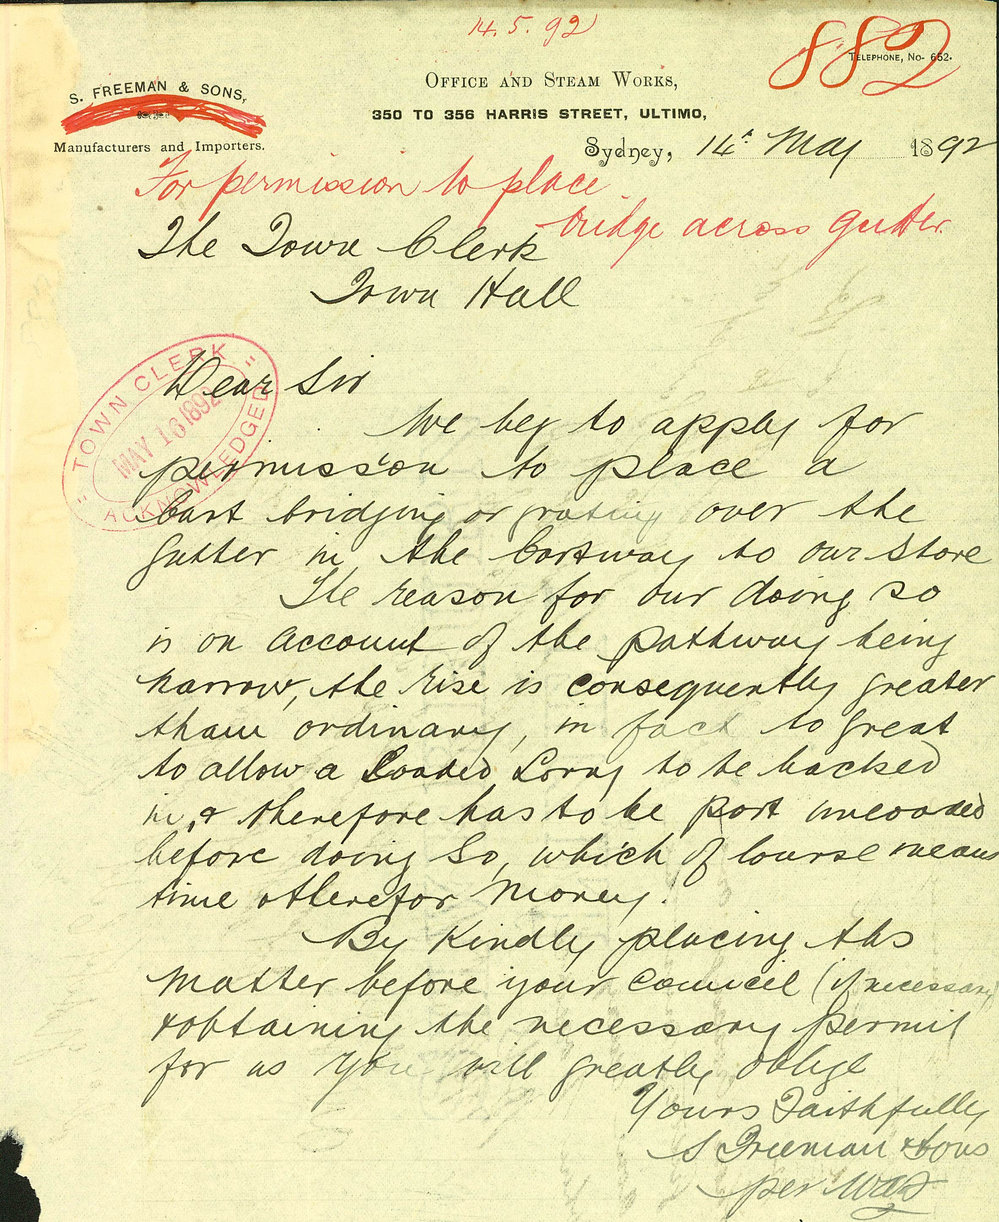 14.5.92
882
TELEPHONE, No. 652.
S. FREEMAN & SONS,
Manufacturers and Importers.
OFFICE AND STEAM WORKS,
350 TO 356 HARRIS STREET, ULTIMO,
Sydney, 14th May 1892
For permission to place
bridge across gutter
The Town Clerk
Town Hall
"TOWN CLERK"
MAY 16 1892
ACKNOWLEDGED
Dear Sir
We beg to apply for
permission to place a
Cart bridging or grating over the
gutter in the Cartway to our Store
The reason for our doing so
is on account of the pathway being
narrow, the rise is consequently greater
than ordinary, in fact to great
to allow a Loaded Lorry to be backed
in, & therefore has to be part unloaded
before doing so, which of course means
time & therefor money.
By Kindly placing this
matter before your council (if necessary)
& obtaining the necessary permit
for us you will greatly oblige
Yours Faithfully
S Freeman & Sons
per